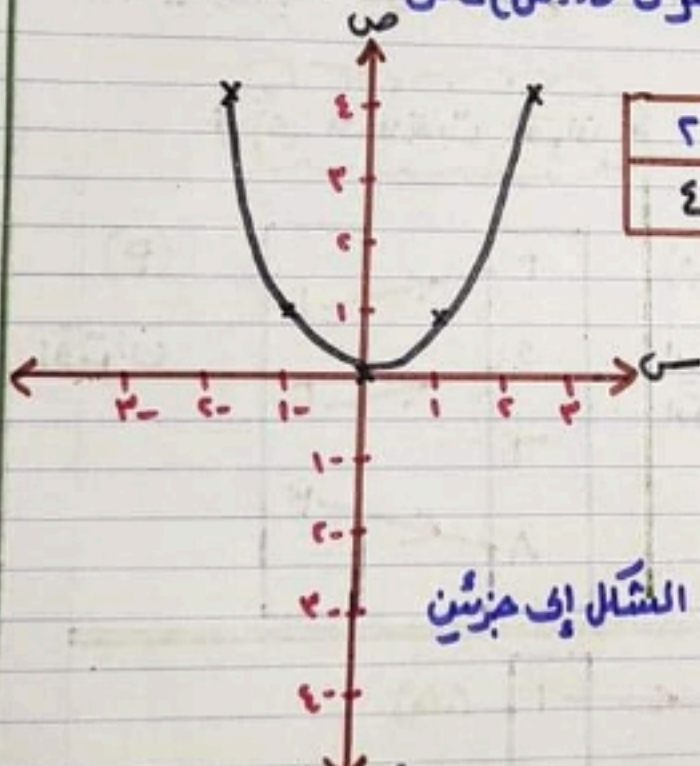 ص
٤
٢
٣
٤
٢
١
س
-٣ -٢ -١ ١ ٢ ٣
-١
-٢
-٣
الشكل إلى جزئين
-٤